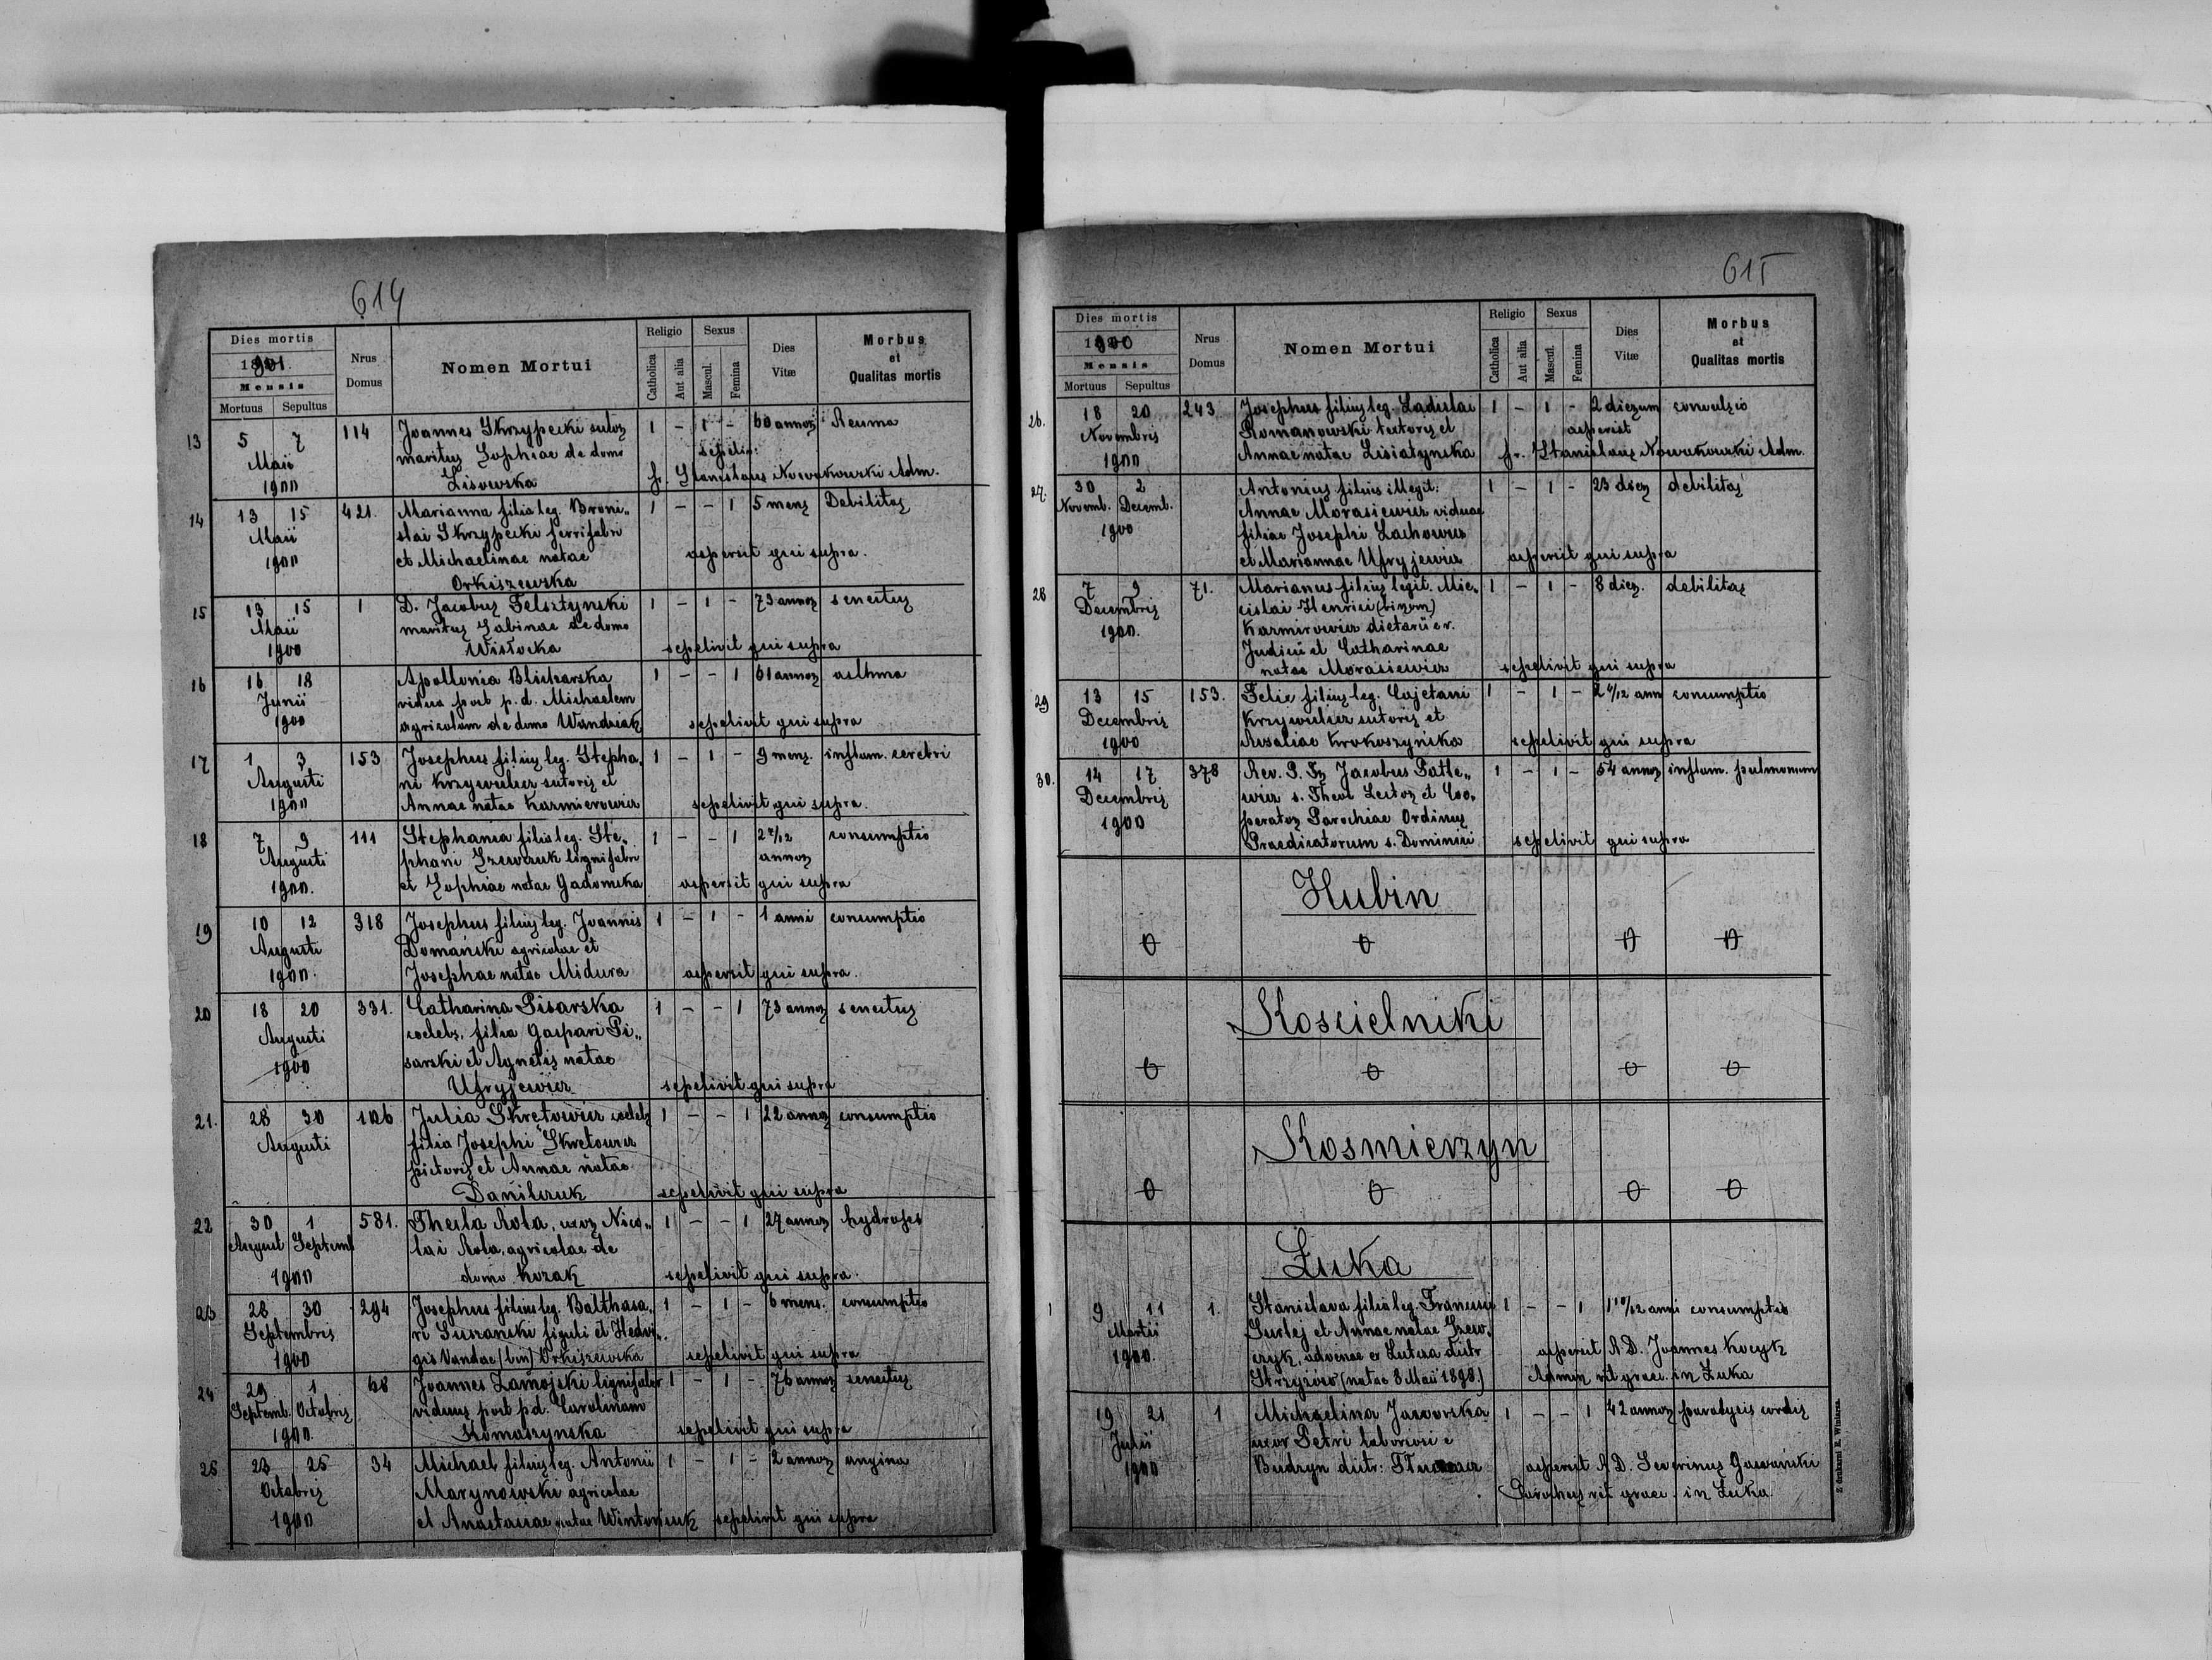 614
Dies mortis
Mensis
Mortuus Sepultus
Nrus Domus
Nomen Mortui
Religio
Catholica Aut alia
Sexus
Mascul. Femina
Dies Vitæ
Morbus et Qualitas mortis
13 5 7 114 Joannes Skrzypecki sutor 1 - 1 - 60 annor Reuma
Maii maritus Sophiae de domo sepeliv.
1900 Lisowska fr. Stanislaus Nowakowski Adm.
14 13 15 421. Marianna filia leg. Broni„ 1 - - 1 5 mens Debilitas
Maii slai Skrzypecki ferrifabri
1900 et Michaelinae natae aspersit qui supra.
Orkiszewska
15 13 15 1 D. Jacobus Felsztynski 1 - 1 - 73 annor senectus
Maii maritus Sabinae de domo
1900 Wisłocka sepelivit qui supra
16 16 18 Apollonia Blicharska 1 - - 1 61 annor asthma
Junii vidua post p. d. Michaelem
1900 agricolam de domo sepelivit qui supra
17 1 3 153 Josephus filius leg. Stepha„ 1 - 1 - 9 mens. inflam. cerebri
Augusti ni Krzywulicz sutoris et
1900 Annae natae Kazmierowicz sepelivit qui supra.
18 7 9 111 Stephania filia leg. Ste„ 1 - - 1 consumptio
Augusti phani Szewczuk lignifabri annor
1900. et Sophiae natae Gadomska aspersit qui supra
19 10 12 318 Josephus filius leg. Joannis 1 - 1 - 1 anni consumptio
Augusti Domański agricolae et
1900. Josephae natae Midura aspersit qui supra.
20 18 20 331. Catharina Pisarska 1 - - 1 73 annor senectus
Augusti coelebs, filia Gaspari Pi„
1900 sarski et Agnetis natae
Ufryjewicz sepelivit qui supra
21. 28 30 106 Julia Skrętowicz coelebs 1 - - 1 22 annor consumptio
Augusti filia Josephi Skretowicz
pictoris et Annae natae
Danilczuk sepelivit qui supra
22 30 1 581. Thecla Rola, uxor Nico„ 1 - - 1 27 annor hydrops
August Septemb lai Rola, agricolae de
1900 domo Kozak sepelivit qui supra.
23 28 30 294 Josephus filius leg. Balthasa„ 1 - 1 - 6 mens. consumptio
Septembris ri Suszanski figuli et Hedvi„
1900 gis Vandae (bin) Orkiszewska sepelivit qui supra
24 29 1 68 Joannes Zamojski lignifaber 1 - 1 - 76 annor senectus
Septemb. Octobris viduus post pd. Carolinam
1900 Komaszynska sepelivit qui supra
25 23 25 34 Michael filius leg. Antonii 1 - 1 - 2 annor angina
Octobris Marynowski agricolae
1900 et Anastasiae natae Wintoniuk sepelivit qui supra
615
Dies mortis
1900
Mensis
Mortuus Sepultus
Nrus Domus
Nomen Mortui
Religio
Catholica Aut alia
Sexus
Mascul. Femina
Dies Vitæ
Morbus et Qualitas mortis
26. 18 20 243 Josephus filius leg. Ladislai 1 - 1 - 2 dierum convulsio
Novembris Romanowski textoris et aspersit
1900 Annae natae Lisiatynska fr. Stanislaus Nowakowski Adm.
27. 30 2 Antonius filius illegit. 1 - 1 - 23 dies debilitas
Novemb. Decemb. Annae Morasiewicz viduae
1900 filiae Josephi Lachowicz
et Mariannae Ufryjewicz aspersit qui supra
28 7 9 71. Marianus filius legit. Mie„ 1 - 1 - 8 dies. debilitas
Decembris cislai Henrici (binom)
1900. Kazmirowicz dietarii c. r.
Judicii et Catharinae
natae Morasiewicz sepelivit qui supra
29 13 15 153. Felix filius leg. Cajetani 1 - 1 - ann consumptio
Decembris Krzywulicz sutoris et
1900 Rosaliae Krokoszyńska sepelivit qui supra
30. 14 17 378 Rev. P. Fr. Jacobus Patle„ 1 - 1 - 54 annor inflam. pulmonum
Decembris wicz s. Theol Lector et Coo„
1900 perator Parochiae Ordinis
Praedicatorum s. Dominici sepelivit qui supra
Hubin
0 0 0 0
Koscielniki
0 0 0 0
Kosmierzyn
0 0 0 0
Łuka
1 9 11 1. Stanislava filia leg. Francisci 1 - - 1 1 10/12 anni consumptio
Martii Surlej et Annae natae Szew„
1900. czyk, advenae e Lutcza distr aspersit R. D. Joannes Kocyk
Strzyżów (natae 8 Maii 1898.) Admin rit graec. in Łuka
19 21 1 Michaelina Jaworska 1 - - 1 42 annor paralysis cordis
Julii uxor Petri laboriosi e
1900 Budzyn distr: aspersit R. D. Severinus
Parochus rit graec. in Łuka.
Z drukarni E. Winiarza.